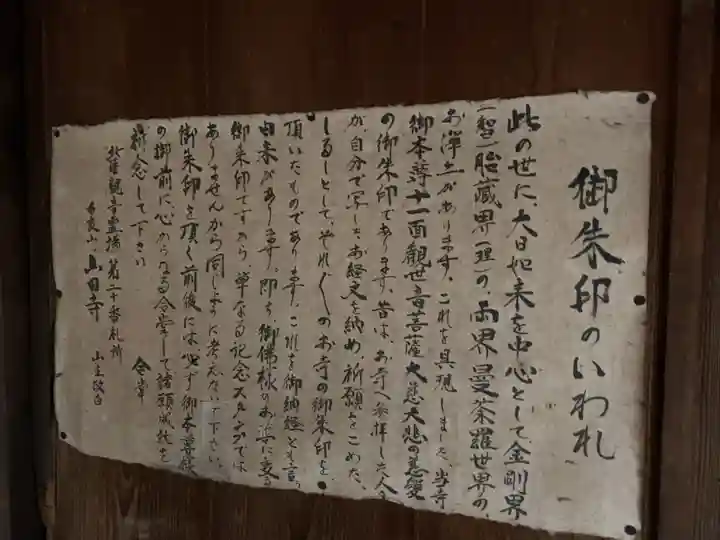 御朱印のいわれ
此の世に、大日如来を中心として、金剛界
(智)胎蔵界(理)の、両界曼荼羅世界の、
お浄土があります。これを具現しました、当寺
御本尊十一面観世音菩薩大慈大悲の
の御朱印であります。昔は、お寺へ参拝した人々
が、自分で写したお経文を納め、祈願をこめた、
しるしとして、それぞれのお寺の御朱印を
頂いたものであります。これを御納経とも言う
由来があります。即ち、御佛様の
御朱印ですから、単なる記念スタンプでは
ありませんから同じように考えないで下さい。
御朱印を頂く前後には必ず御本尊様
の御前に、心からなる合掌して諸願成就を
祈念して下さい 合掌
観音霊場第二十番札所
山田寺 山主敬白